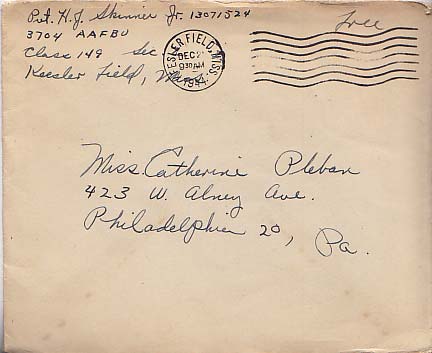 Pvt. H.J. Skinner Jr. 13071524
Free
3704 AAFBU
Class 149 Sec
Keesler Field, Miss.
KEESLER FIELD, MISS.
DEC
930 AM
1944
Miss. Catherine Pleban
423 W. Olney Ave.
Philadelphia 20,
Pa.